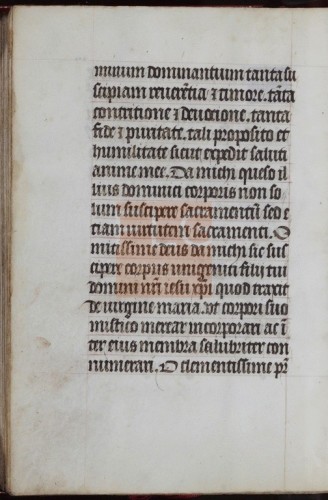 minum dominantium tanta su
scipiam reuerētia ⁊ timore. tāta
contritione ⁊ deuocione. tanta
fide ⁊ puritate. tali proposito et
humilitate sicut expedit saluti
anime mee. Da michi queso il
lius dominici corporis non so
lum suscipere sacramentū sed e
tiam uirtutem sacramenti. O
mitissime deus da michi sic sus
cipere corpus unigeniti filij tui
domini nr̄i iesu xp̄i quod traxit
de uirgine maria. vt corpori suo
mistico merear incorporari ac ī
ter eius membra salubriter con
numerari. O clementissime pr̄